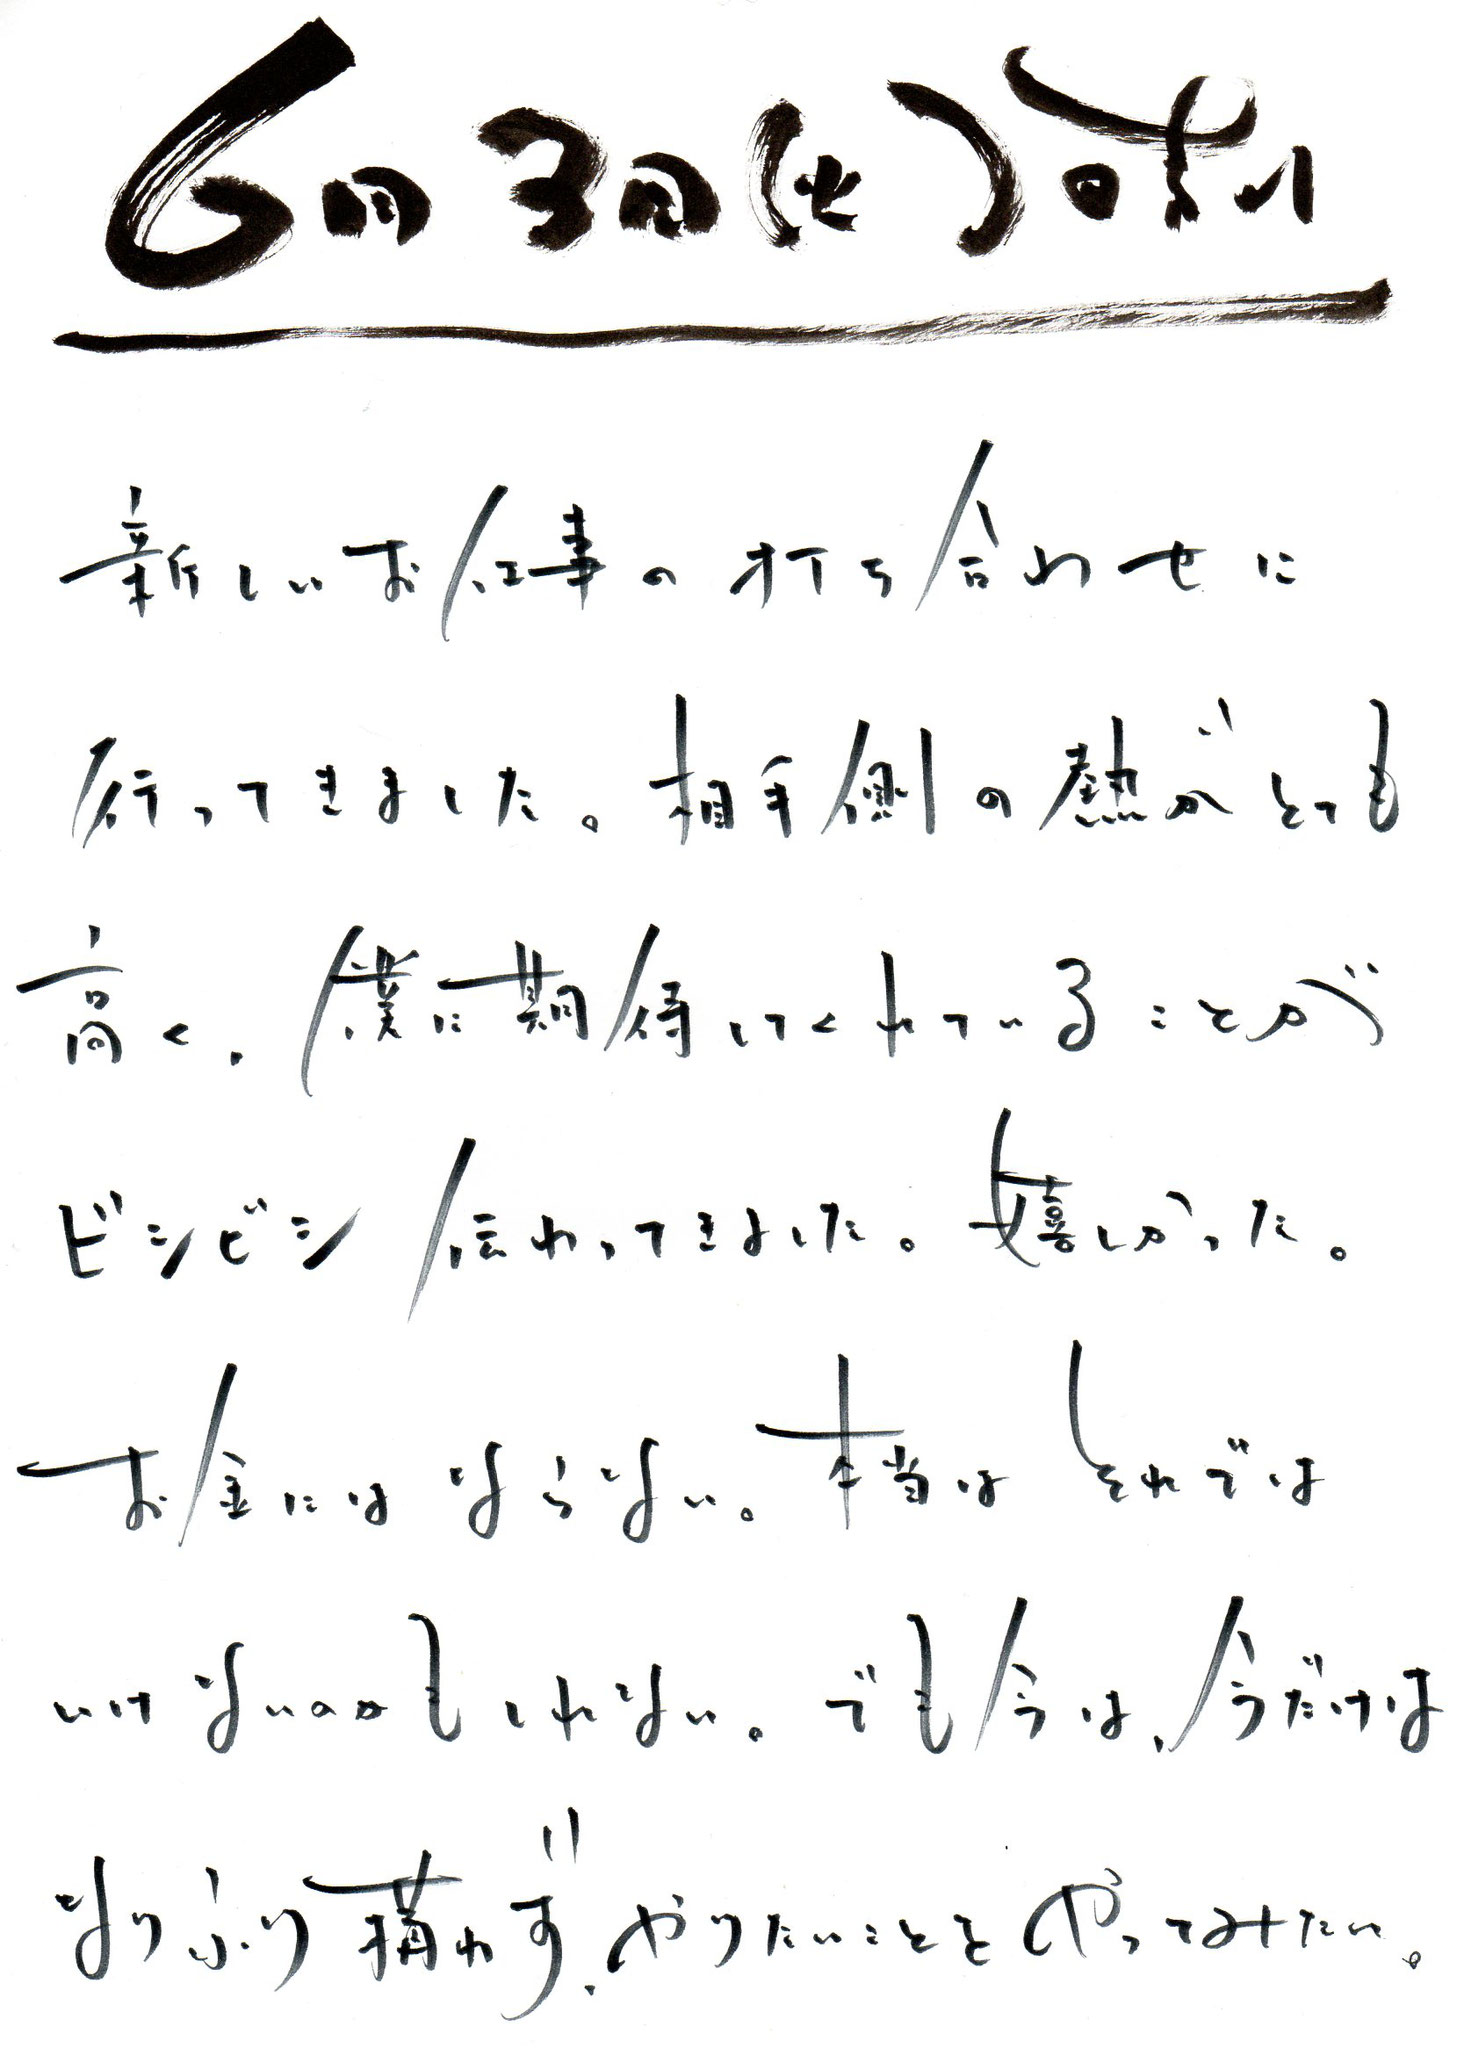 6月3日(火)日刺
新しいお仕事の打ち合わせに
行ってきました。相手側の熱がとても
高く、僕に期待してくれていることが
ビシビシ伝わってきました。嬉しかった。
お金にはならない。本当はそれでは
いけないのかもしれない。でも今は、今だけは
なりふり構わず、やりたいことをやってみたい。